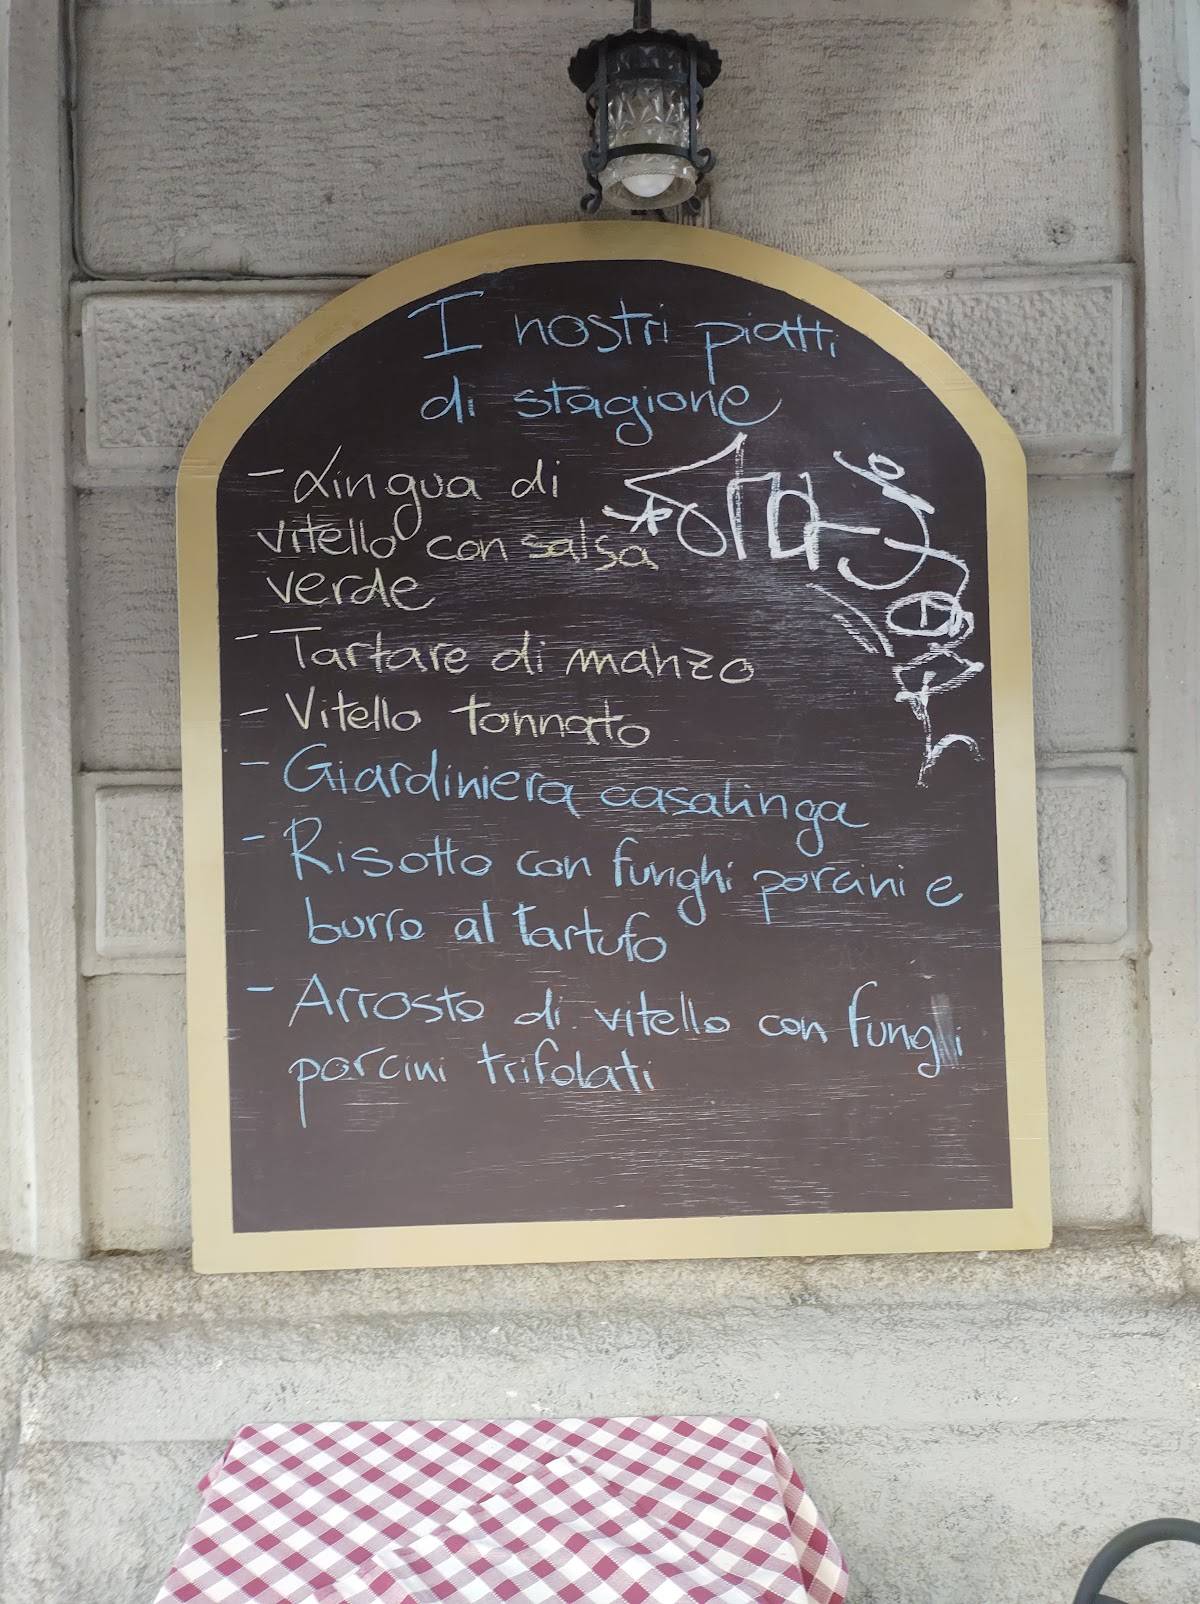 I nostri piatti
di stagione
- Lingua di
vitello con salsa
verde
- Tartare di manzo
- Vitello tonnato
- Giardiniera casalinga
- Risotto con funghi porcini e
burro al tartufo
- Arrosto di vitello con funghi
porcini trifolati